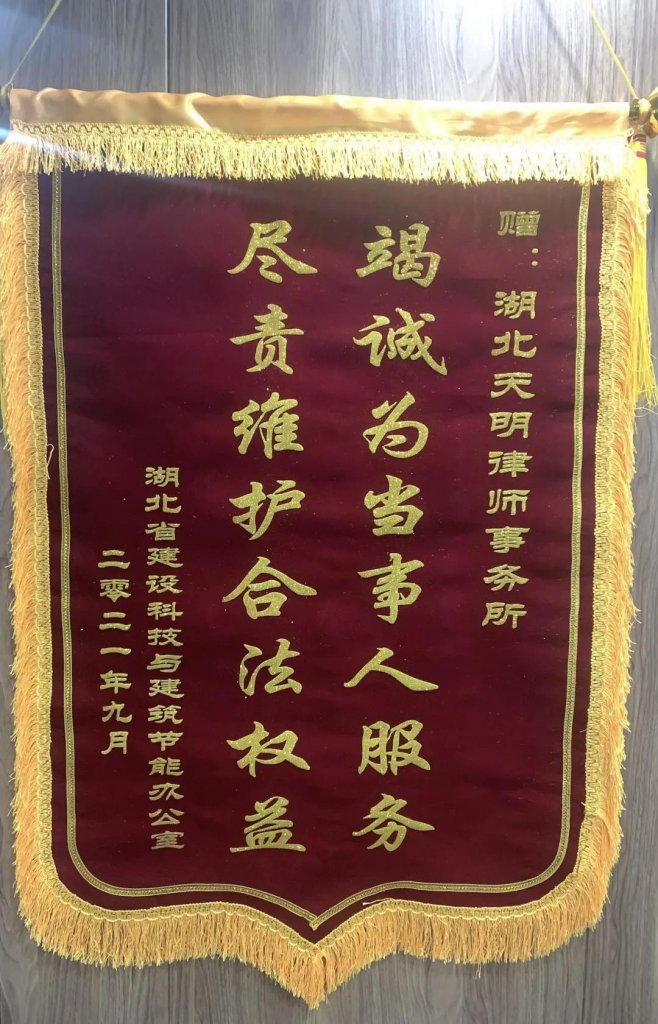 赠：湖北天明律师事务所
竭诚为当事人服务
尽责维护合法权益
湖北省建设科技与建筑节能办公室
二零二一年九月